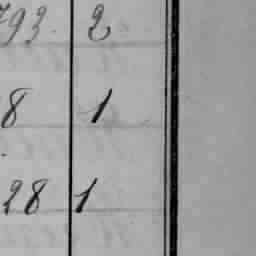 793. 2
8 1
28 1